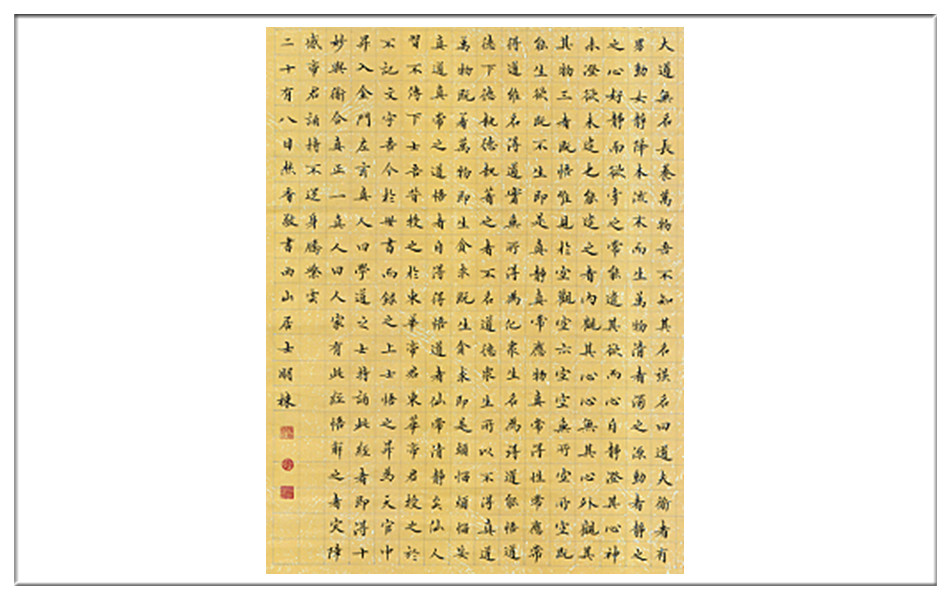 大道無名長養萬物吾不知其名誤名曰道大偷者有
男動女靜降本流末而生萬物清者濁之源動者靜之
之心好靜而欲牽之常能遣其欲而心自靜澄其心神
未澄欲未遣也能遣之者內觀其心心無其心外觀其
其物三者既悟惟見於空觀空六空空無所空所空既
能生欲既不生即是真靜真常應物真常得性常應常
得道雖名得道實無所得為化眾生名為得道能悟道
德下德執德執著之者不名道德眾生所以不得真道
萬物既著萬物即生貪求既生貪求即是煩惱煩惱妄
真道真常之道悟者自得得悟道者仙常清靜矣仙人
習不傳下士吾昔授之於東華帝君東華帝君授之於
不記文字吾今於世書而錄之上士悟之昇為天官中
昇入金門左玄真人曰學道之士持誦此經者即得十
妙與衛合真正一真人曰人家有此經悟解之者災障
感帝君誦持不退身騰紫雲
二十有八日焚香敬書西山居士明棟